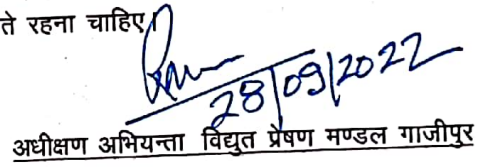 ते रहना चाहिए।
28/09/2022
अधीक्षण अभियन्ता विद्युत प्रेषण मण्डल गाजीपुर